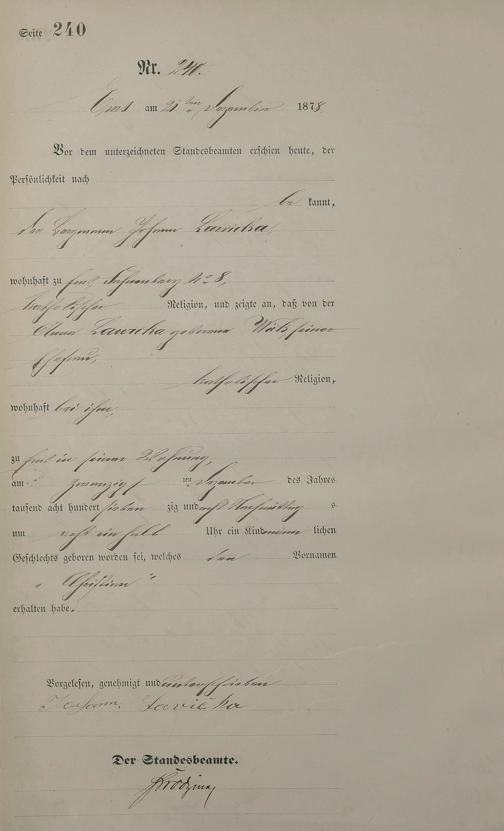 Seite 240
Nr. 240.
am 21ten Dezember 1878
Vor dem unterzeichneten Standesbeamten erschien heute, der
Persönlichkeit nach
be kannt,
der Bergmann Johann Lawicka
wohnhaft zu No 8,
katholischer Religion, und zeigte an, daß von der
Anna Lawicka geborenen seiner
Ehefrau,
katholischer Religion,
wohnhaft bei ihm,
zu in seiner Wohnung,
am zwanzigsten Dezember des Jahres
tausend acht hundert sieben zig und acht Nachmittags
um ein halb Uhr ein Kind männ lichen
Geschlechts geboren worden sei, welches den Vornamen
erhalten habe.
Vorgelesen, genehmigt und unterschrieben
Johann. Lavička
Der Standesbeamte.